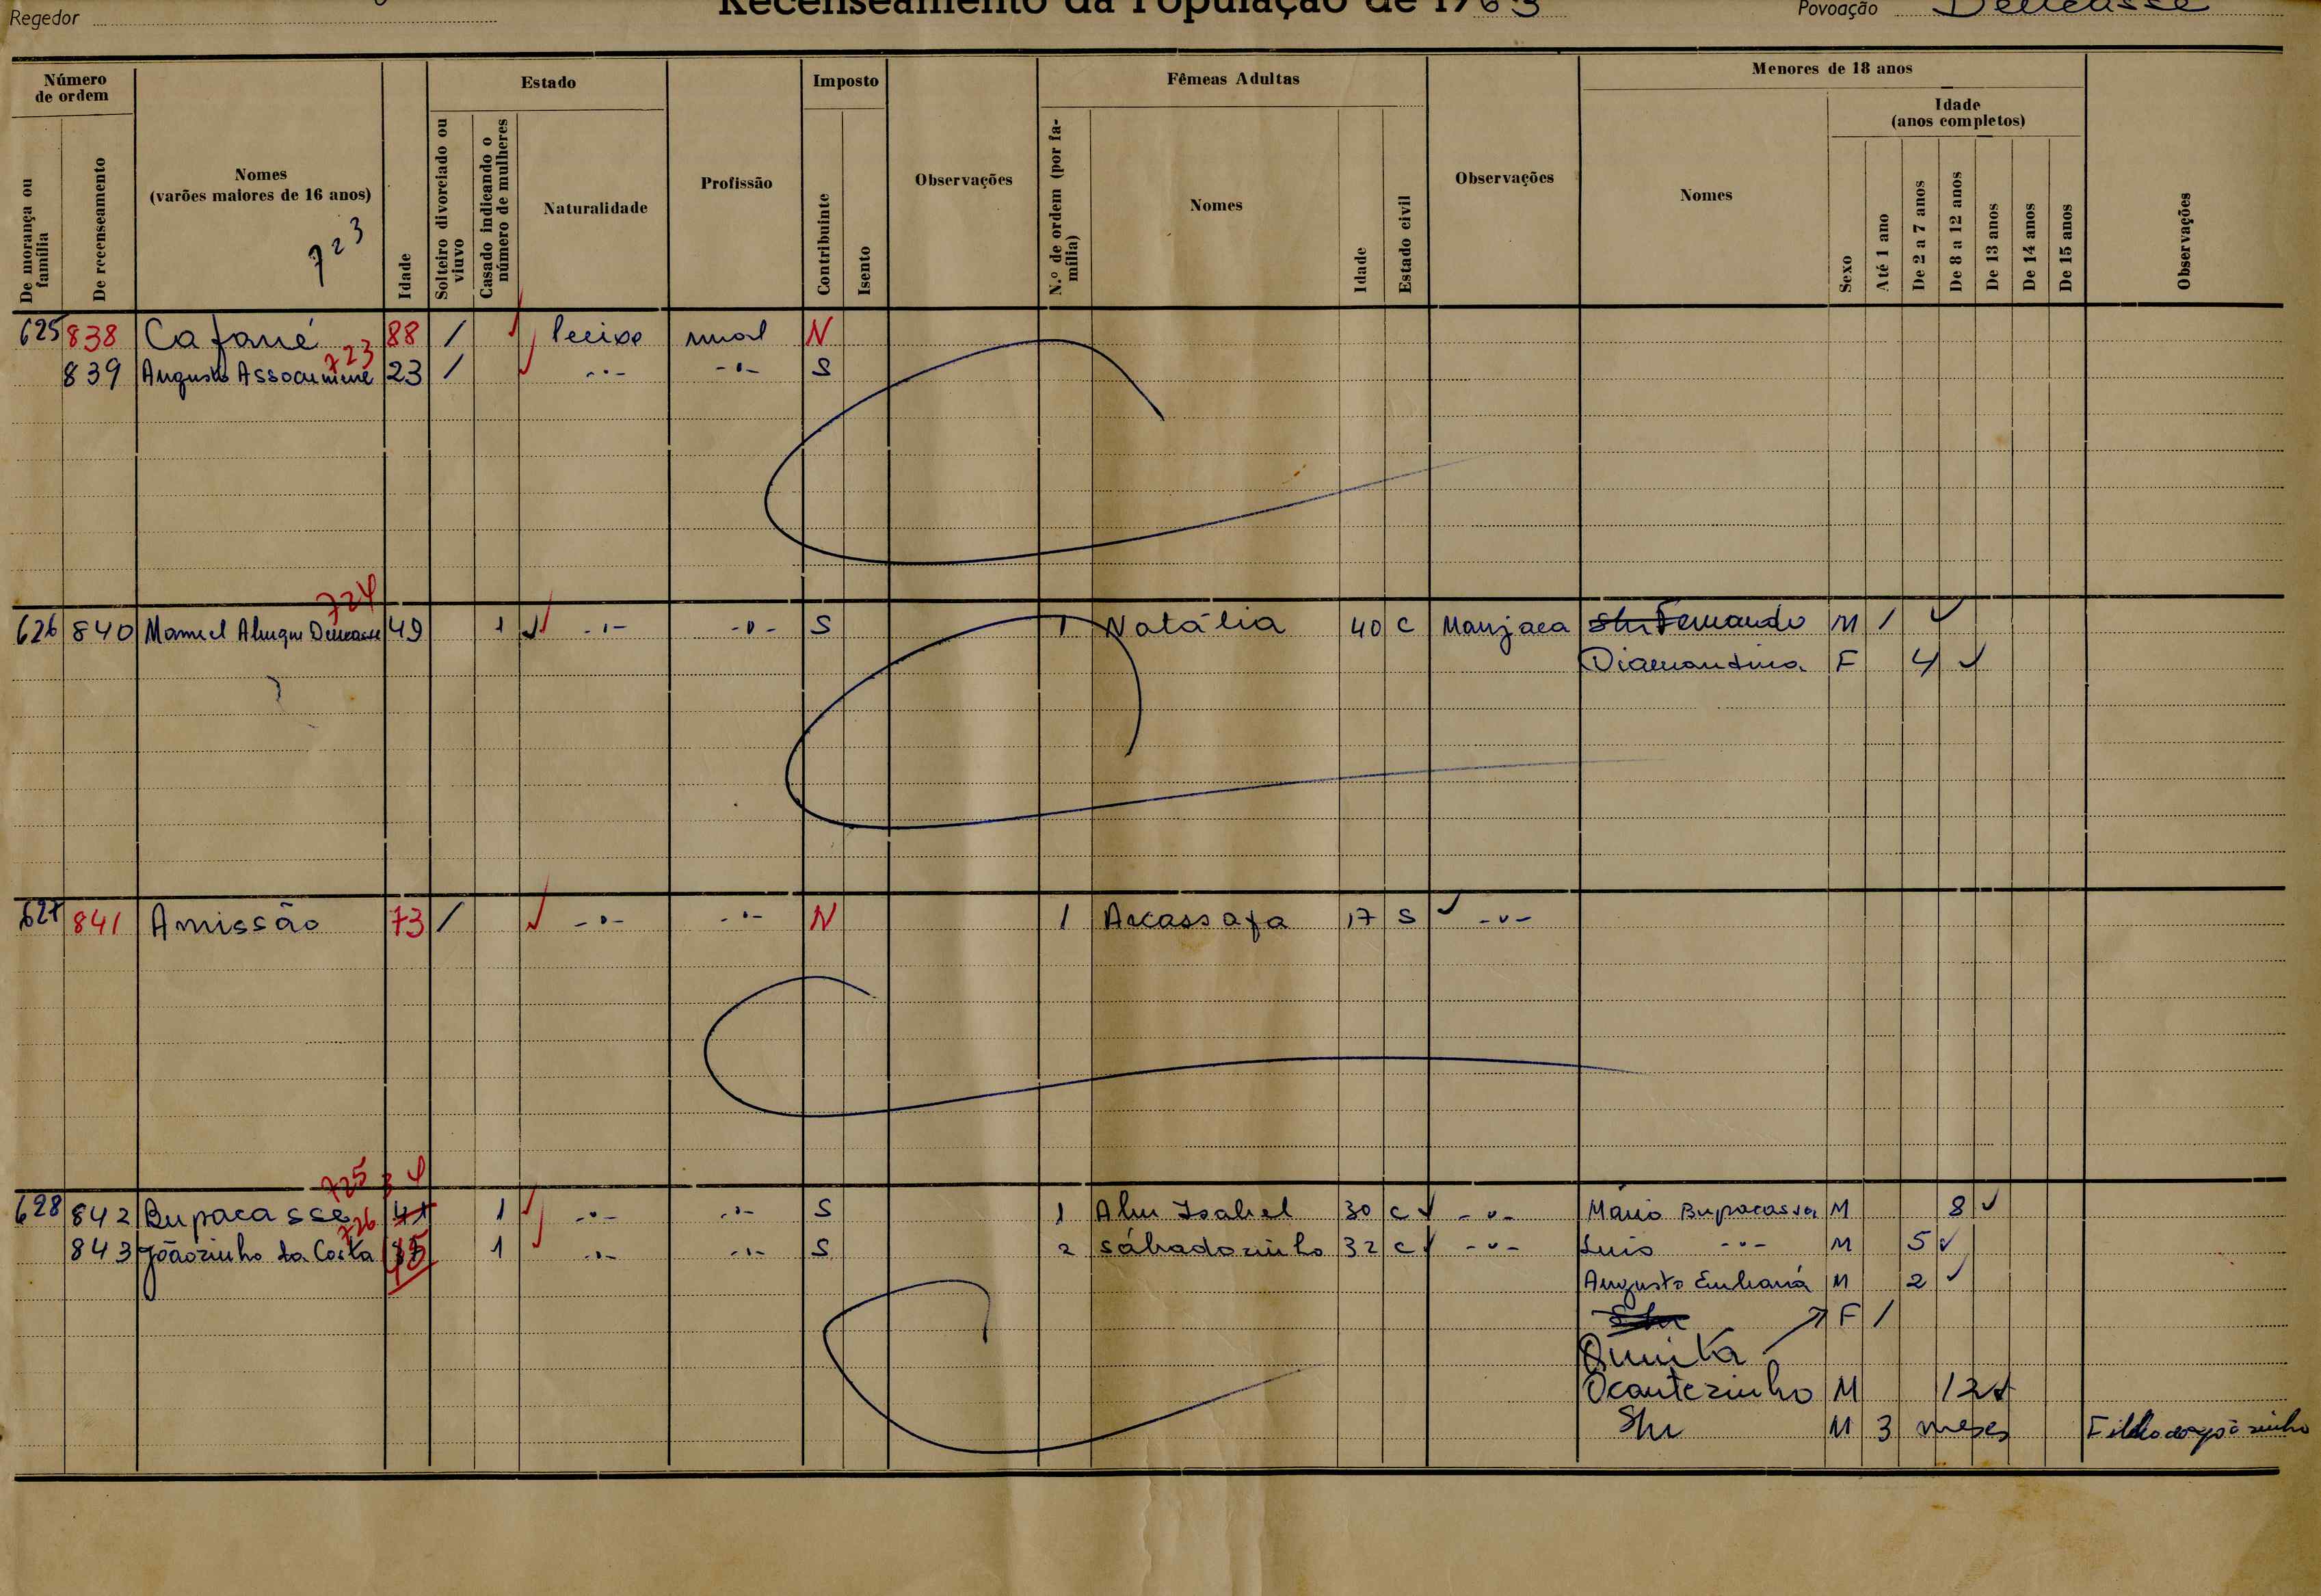 Regedor
Recenseamento da População de 1963
Povoação
Número de ordem
De morança ou família
De recenseamento
Nomes
(varões maiores de 16 anos)
723
Idade
Estado
Solteiro divorciado ou viuvo
Casado indicando o número de mulheres
Naturalidade
Profissão
Imposto
Contribuinte
Isento
Observações
Fêmeas Adultas
N.º de ordem (por família)
Nomes
Idade
Estado civil
Observações
Menores de 18 anos
Nomes
Sexo
Idade
(anos completos)
Até 1 ano
De 2 a 7 anos
De 8 a 12 anos
De 13 anos
De 14 anos
De 15 anos
Observações
625 838 Cafané 88 / N
723
839 Augusto 23 / -"- -"- S
724
626 840 Manuel 49 1 -"- -"- S 1 Natália 40 C Manjaca Fernando M /
Diamantina F 4
627 841 Amissão 73 / -"- -"- N 1 Arcassafa 17 S -"-
725 34
628 842 Bupacasse 1 -"- -"- S 1 Isabel 30 C -"- Mário Bupacassa M 8
726
843 Joãozinho da Costa 45 1 -"- -"- S 2 Sábadozinho 32 C -"- Luis -"- M 5
Augusto M 2
F /
Quinta
Ocantezinho M 12
M 3 meses Filho do Joãozinho